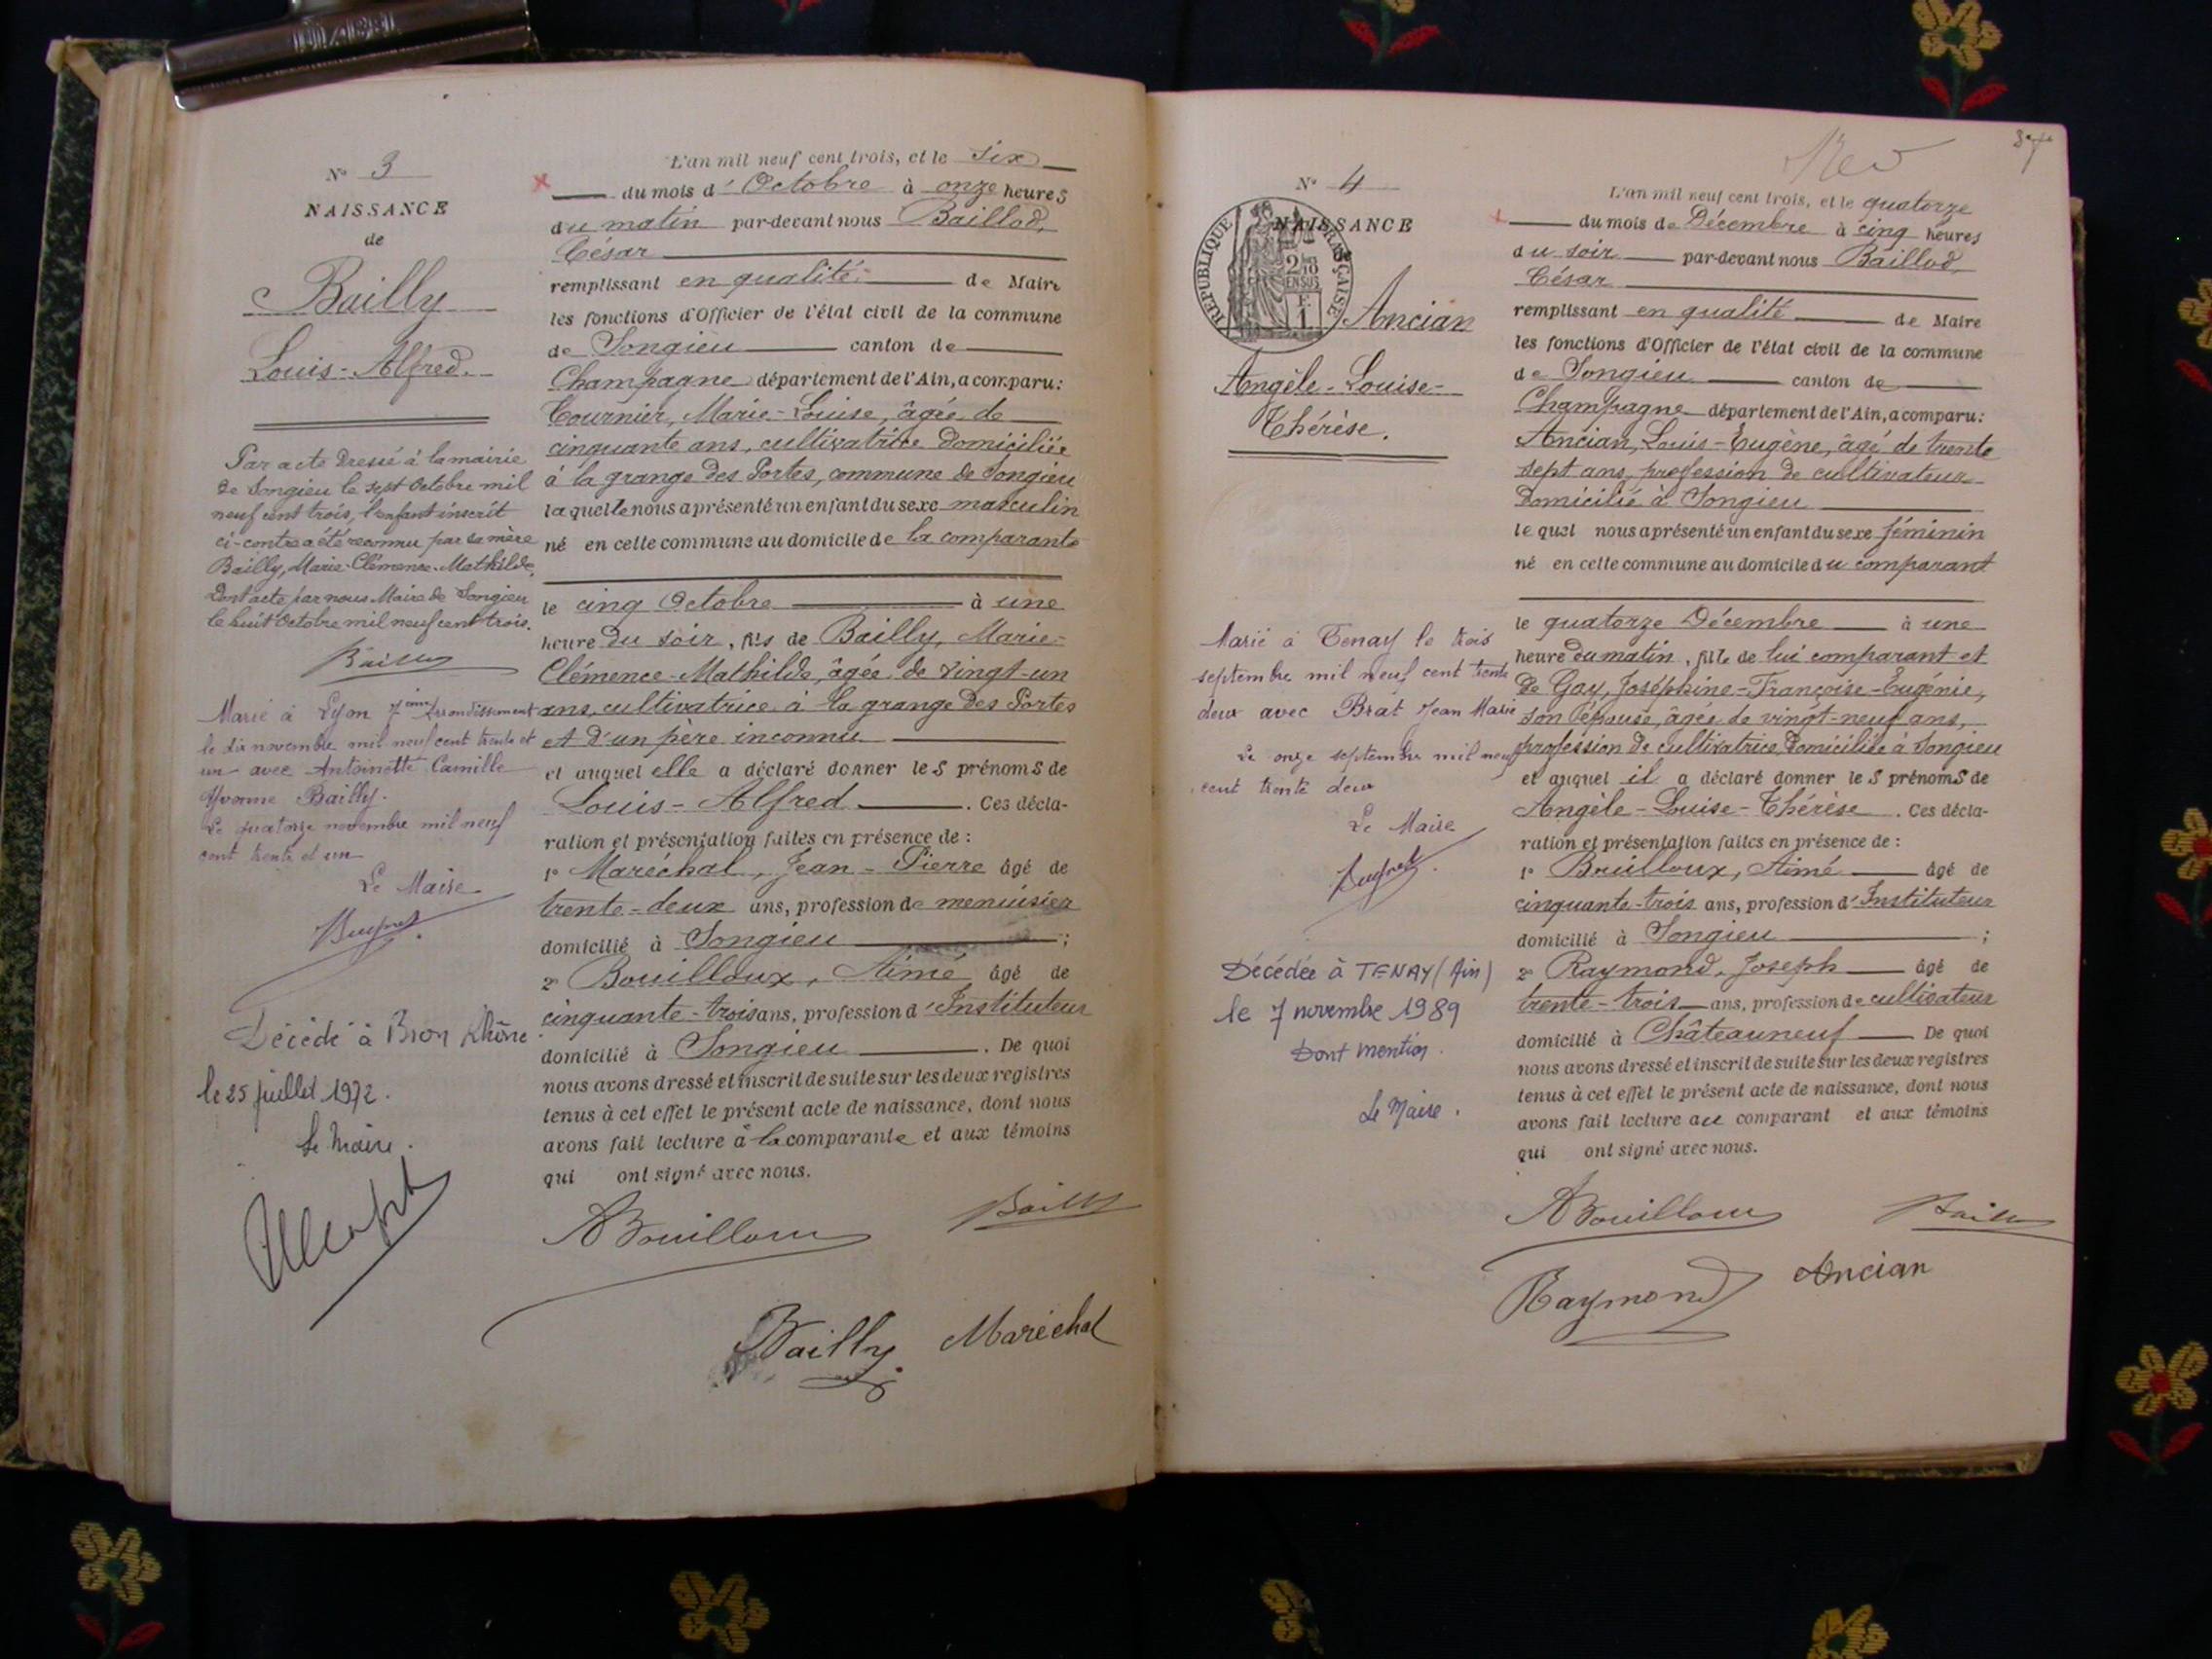 N° 3
NAISSANCE
de
Bailly
Louis-Alfred.
Par acte dressé à la mairie
de Songieu le sept Octobre mil
neuf cent trois, l'enfant inscrit
ci-contre a été reconnu par sa mère
Bailly, Marie-Clémence-Mathilde.
Dont acte par nous Maire de Songieu
le huit Octobre mil neuf cent trois.
Marié à Lyon 7ème Arrondissement
le dix novembre mil neuf cent trente et
un avec Antoinette Camille
Yvonne Bailly.
Le quatorze novembre mil neuf
cent trente et un
Le Maire
Décédé à Bron Rhône
le 25 juillet 1972.
Le Maire.
L'an mil neuf cent trois, et le six
du mois d'Octobre à onze heures
du matin par-devant nous Baillod,
César
remplissant en qualité de Maire
les fonctions d'Officier de l'état civil de la commune
de Songieu canton de
Champagne département de l'Ain, a comparu:
Tournier, Marie-Louise, âgée de
cinquante ans, cultivatrice domiciliée
à la grange des Portes, commune de Songieu
laquelle nous a présenté un enfant du sexe masculin
né en cette commune au domicile de la comparante
le cinq Octobre à une
heure du soir, fils de Bailly, Marie-
Clémence-Mathilde, âgée de vingt-un
ans, cultivatrice à la grange des Portes
et d'un père inconnu
et auquel elle a déclaré donner les prénoms de
Louis-Alfred. Ces décla-
ration et présentation faites en présence de :
1° Maréchal, Jean-Pierre âgé de
trente-deux ans, profession de menuisier
domicilié à Songieu ;
2° Bouilloux, Aimé âgé de
cinquante-trois ans, profession d'Instituteur
domicilié à Songieu. De quoi
nous avons dressé et inscrit de suite sur les deux registres
tenus à cet effet le présent acte de naissance, dont nous
avons fait lecture à la comparante et aux témoins
qui ont signé avec nous.
ABouilloux
Bailly Maréchal
37
N° 4
NAISSANCE
RÉPUBLIQUE FRANÇAISE
2/10 EN SUS
F.
1
Ancian
Angèle-Louise-
Thérèse.
Marié à Tenay le trois
septembre mil neuf cent trente
deux avec Brat Jean Marie
Le onze septembre mil neuf
cent trente deux
Le Maire
Décédée à TENAY (Ain)
le 7 novembre 1989
Dont mention.
Le Maire.
L'an mil neuf cent trois, et le quatorze
du mois de Décembre à cinq heures
du soir par-devant nous Baillod
César
remplissant en qualité de Maire
les fonctions d'Officier de l'état civil de la commune
de Songieu canton de
Champagne département de l'Ain, a comparu:
Ancian, Louis-Eugène, âgé de trente
sept ans, profession de cultivateur
domicilié à Songieu
lequel nous a présenté un enfant du sexe féminin
né en cette commune au domicile du comparant
le quatorze Décembre à une
heure du matin, fille de lui comparant et
de Gay, Joséphine-Françoise-Eugénie,
son épouse, âgée de vingt-neuf ans,
profession de cultivatrice domiciliée à Songieu
et auquel il a déclaré donner les prénoms de
Angèle-Louise-Thérèse. Ces décla-
ration et présentation faites en présence de :
1° Bouilloux, Aimé âgé de
cinquante-trois ans, profession d'Instituteur
domicilié à Songieu ;
2° Raymond, Joseph âgé de
trente-trois ans, profession de cultivateur
domicilié à Châteauneuf De quoi
nous avons dressé et inscrit de suite sur les deux registres
tenus à cet effet le présent acte de naissance, dont nous
avons fait lecture au comparant et aux témoins
qui ont signé avec nous.
ABouilloux
Raymond Ancian